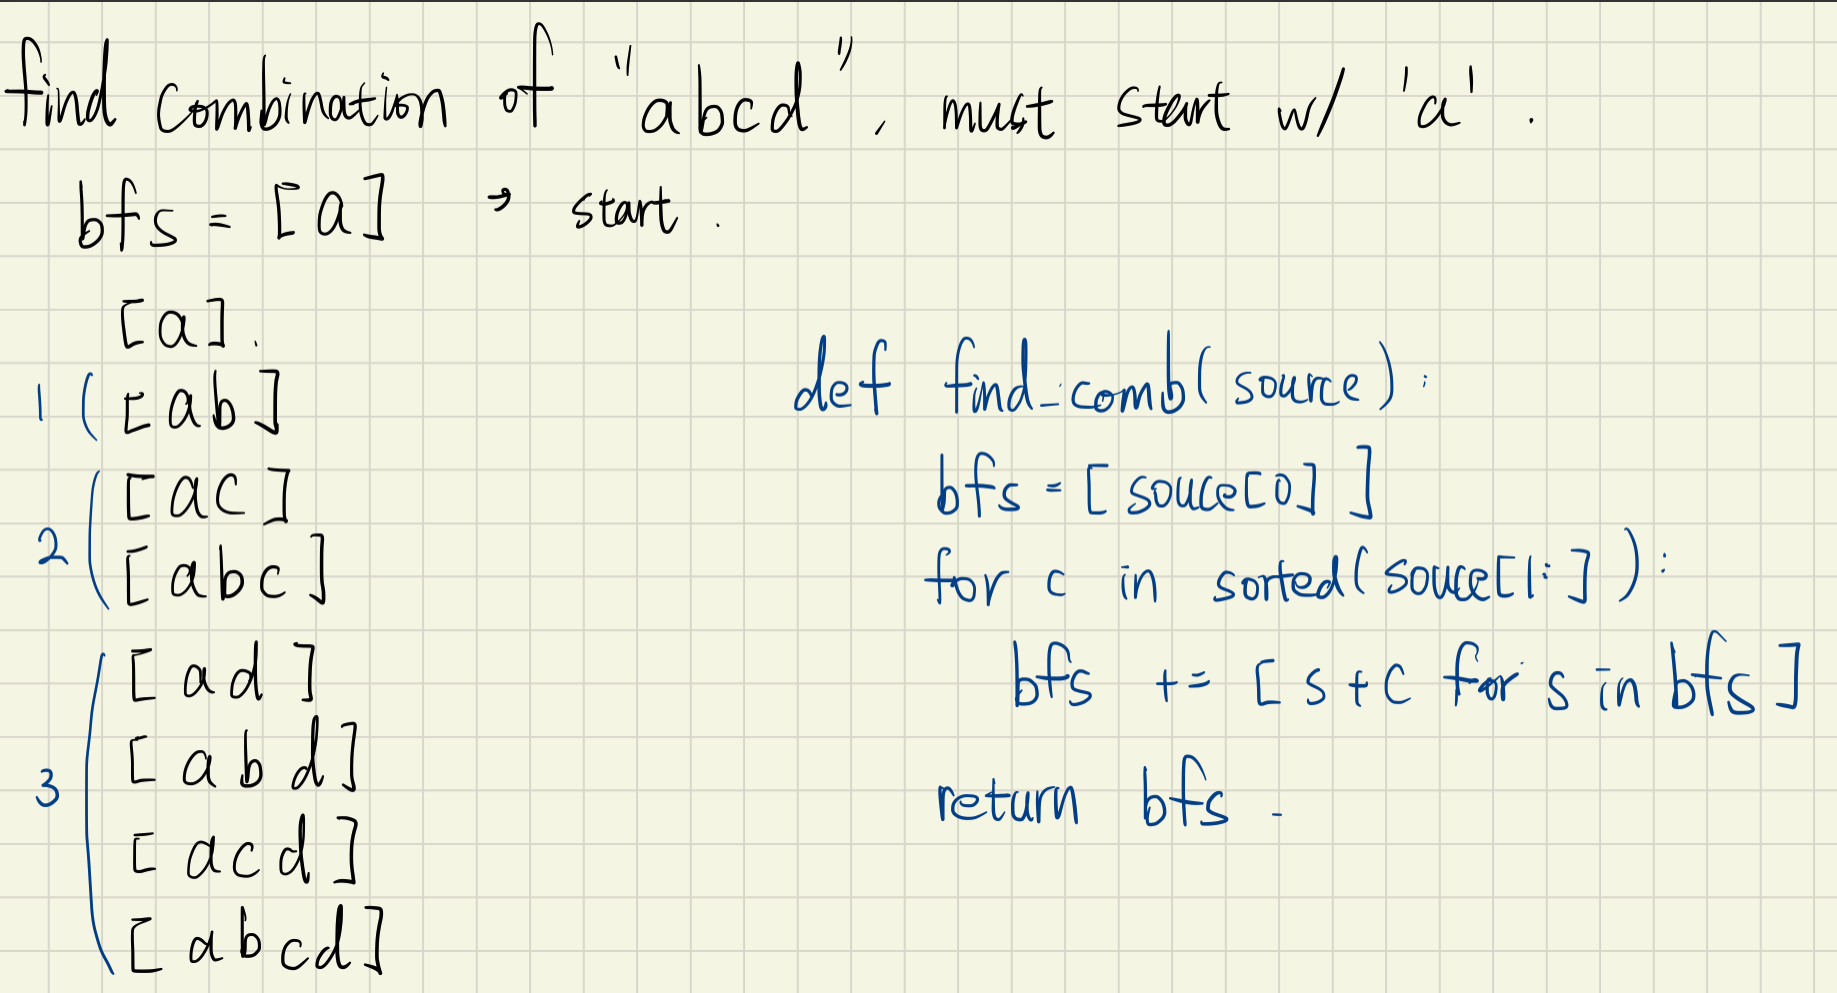 find combination of "abcd", must start w/ 'a'.
bfs = [a] → start.
[a].
1 ( [ab]
[ac]
2 ( [abc]
[ad]
[abd]
3 ( [acd]
[abcd]
def find_comb(source):
bfs = [souce[0]]
for c in sorted(souce[1:]):
bfs += [s+c for s in bfs]
return bfs.